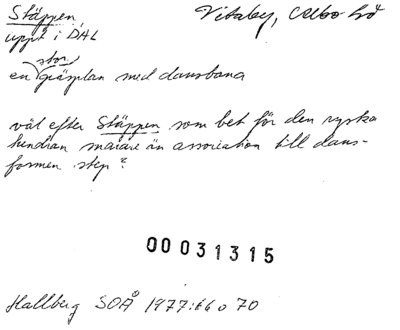 Stäppen
Vitaby, Albo hd
uppt i DAL
stor
en gräsplan med dansbana
väl efter Stäppen som bet för den ryska
snarare än association till dans-
formen step?
00031315
Hallberg SOÅ 1977:66 o 70